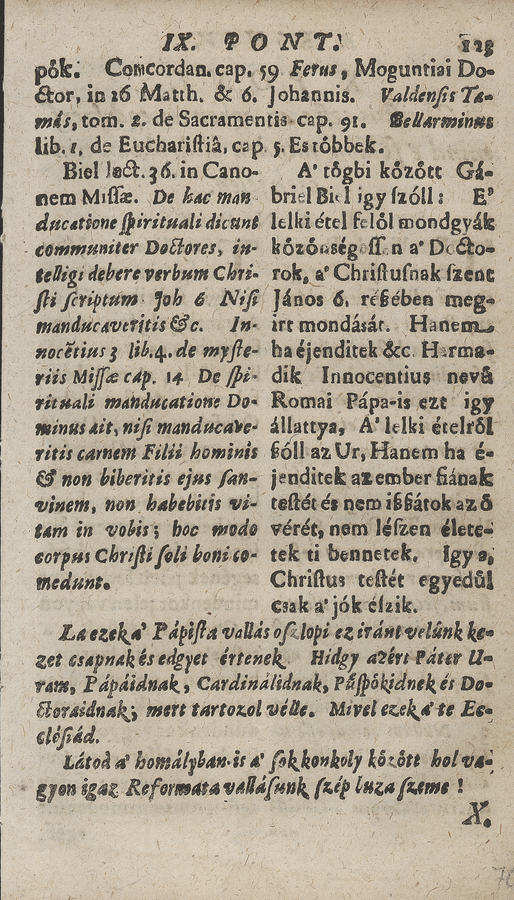 IX. PONT.
123
pök. Concordan. cap. 59 Ferus, Moguntiai Do-
ctor, in 26 Matth. & 6. Johannis. Valdensis Ta-
más, tom. 2. de Sacramentis cap. 91. Bellarminus
lib. 1, de Euchariſtiâ, cap. 5. Es többek.
Biel lect. 36. in Cano-
nem Miſſæ. De hac man
ducatione ſpirituali dicunt
communiter Doctores, in-
telligi debere verbum Chri-
ſti ſcriptum Joh 6 Niſi
manducaveritis &c. In-
nocẽtius 3 lib. 4. de myſte-
riis Miſſæ cap. 14 De ſpi-
rituali manducatione Do-
minus ait, niſi manducave-
ritis carnem Filii hominis
& non biberitis ejus ſan-
vinem, non habebitis vi-
tam in vobis; hoc modo
corpus Chriſti ſoli boni co-
medunt.
A' többi között Gá-
briel Biel igy ſzóll: E'
lelki étel felől mondgyák
közönségeſſen a' Docto-
rok, a' Chriſtuſnak ſzent
János 6. réßében meg-
irt mondását. Hanem
ha éjenditek &c. Harma-
dik Innocentius nevű
Romai Pápa-is ezt igy
állattya, A' lelki ételről
ßóll az Ur, Hanem ha é-
jenditek az ember fiának
teſtét és nem ißßátok az ő
vérét, nem léſzen élete-
tek ti bennetek. Igy a,
Chriſtus teſtét egyedül
csak a' jók éſzik.
La ezek a' Pápiſta vallás oſzlopi ez iránt velünk ke-
zet csapnak és edgyet értenek. Hidgy azért Páter U-
ram, Pápáidnak, Cardinálidnak, Püſpökidnek és Do-
ctoraidnak; mert tartozol vélle. Mivel ezek a' te Ec-
cléſiád.
Látod a' homályban-is a' ſok konkoly között hol va-
gyon igaz Reformata valláſunk ſzép buza ſzeme!
X.